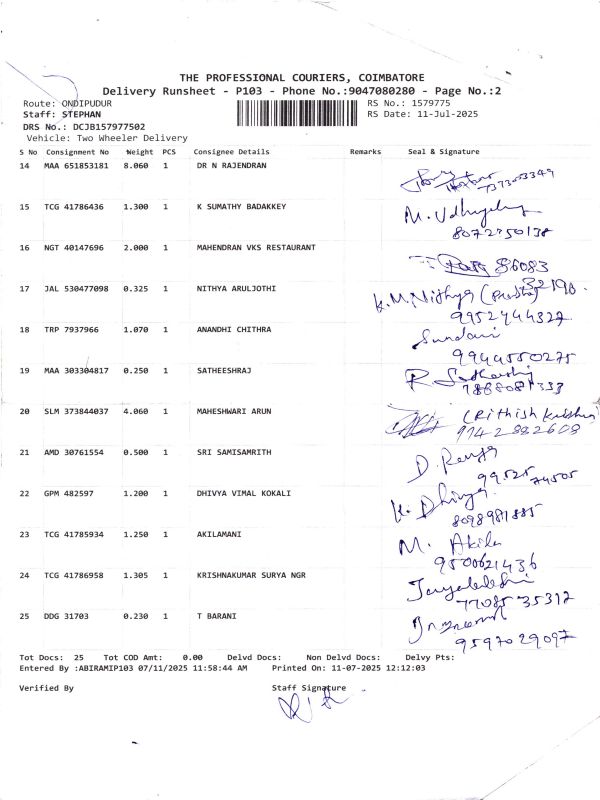 THE PROFESSIONAL COURIERS, COIMBATORE
Delivery Runsheet - P103 - Phone No.:9047080280 - Page No.:2
Route: ONDIPUDUR
RS No.: 1579775
Staff: STEPHAN
RS Date: 11-Jul-2025
DRS No.: DCJB157977502
Vehicle: Two Wheeler Delivery
S No Consignment No Weight PCS Consignee Details Remarks Seal & Signature
14 MAA 651853181 8.060 1 DR N RAJENDRAN
7373003349
15 TCG 41786436 1.300 1 K SUMATHY BADAKKEY M.
8072750138
16 NGT 40147696 2.000 1 MAHENDRAN VKS RESTAURANT
86083
32190
17 JAL 530477098 0.325 1 NITHYA ARULJOTHI K.M.Nithya
9952444327
18 TRP 7937966 1.070 1 ANANDHI CHITHRA Sundari
9944550275
19 MAA 303304817 0.250 1 SATHEESHRAJ R
20 SLM 373844037 4.060 1 MAHESHWARI ARUN (Rithish Krishna)
9942882608
21 AMD 30761554 0.500 1 SRI SAMISAMRITH D. Renga
99525 74505
22 GPM 482597 1.200 1 DHIVYA VIMAL KOKALI K. Dhivya
8098981885
23 TCG 41785934 1.250 1 AKILAMANI M. Akila
9500621436
24 TCG 41786958 1.305 1 KRISHNAKUMAR SURYA NGR
77085 35317
25 DDG 31703 0.230 1 T BARANI
9597029097
Tot Docs: 25 Tot COD Amt: 0.00 Delvd Docs: Non Delvd Docs: Delvy Pts:
Entered By :ABIRAMIP103 07/11/2025 11:58:44 AM Printed On: 11-07-2025 12:12:03
Verified By Staff Signature